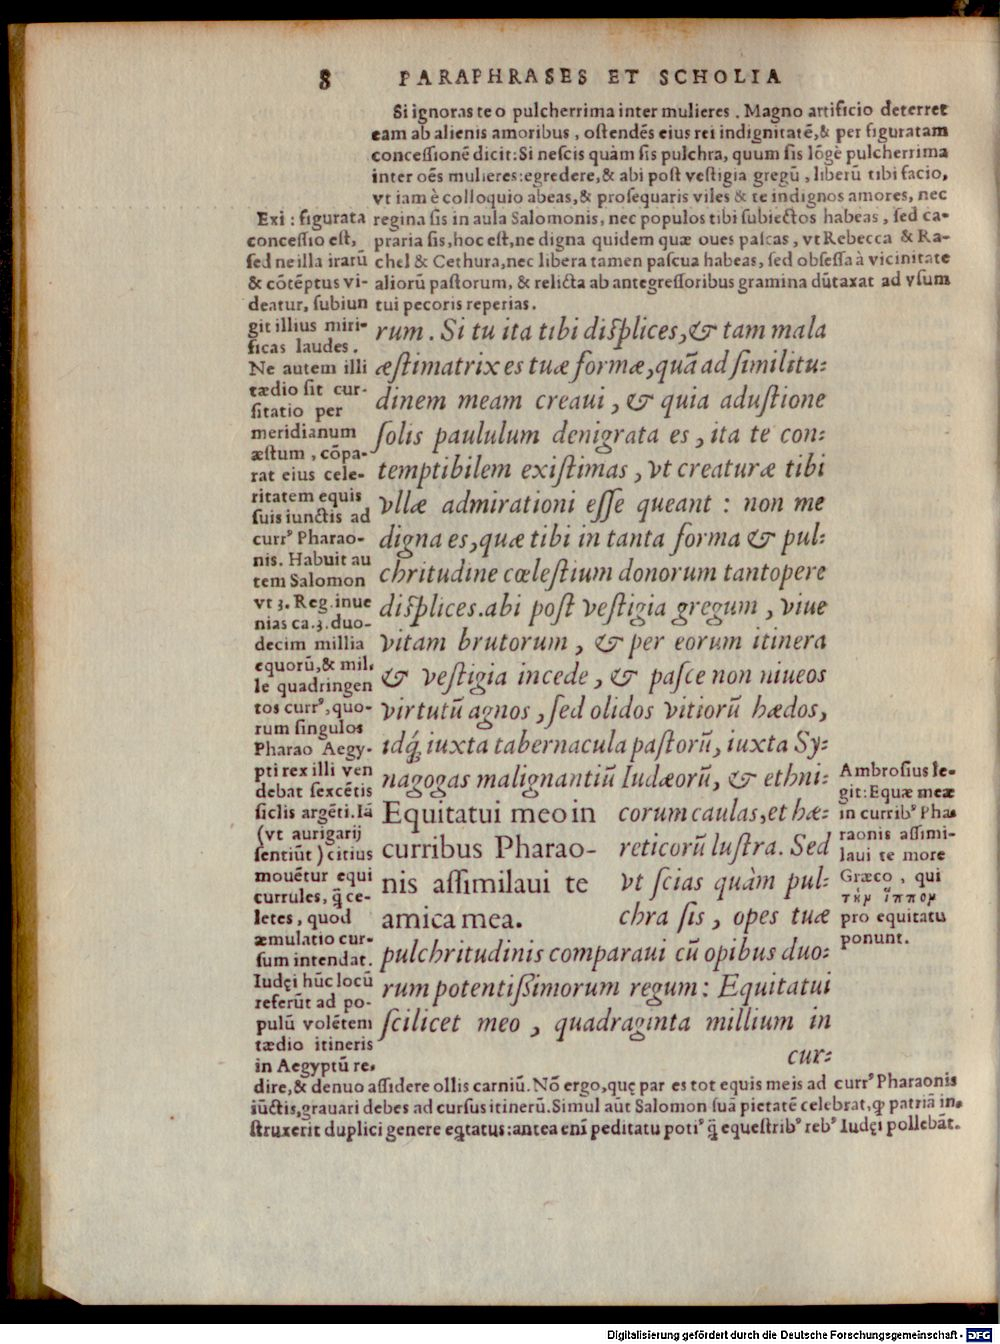 8 PARAPHRASES ET SCHOLIA
Si ignoras te o pulcherrima inter mulieres. Magno artificio deterret
eam ab alienis amoribus, ostendēs eius rei indignitatē,& per figuratam
concessionē dicit: Si nescis quàm sis pulchra, quum sis lōgè pulcherrima
inter oēs mulieres: egredere,& abi post vestigia gregū, liberū tibi facio,
vt iam è colloquio abeas,& prosequaris viles & te indignos amores, nec
regina sis in aula Salomonis, nec populos tibi subiectos habeas, sed ca-
praria sis, hoc est, ne digna quidem quæ oues pascas, vt Rebecca & Ra-
chel & Cethura, nec libera tamen pascua habeas, sed obsessa à vicinitate
aliorū pastorum, & relicta ab antegressoribus gramina dūtaxat ad vsum
tui pecoris reperias.
rum. Si tu ita tibi displices,& tam mala
æstimatrix es tuæ formæ, quā ad similitu-
dinem meam creaui, & quia adustione
solis paululum denigrata es, ita te con-
temptibilem existimas, vt creaturæ tibi
vllæ admirationi esse queant: non me
digna es, quæ tibi in tanta forma & pul-
chritudine cœlestium donorum tantopere
displices. abi post vestigia gregum, viue
vitam brutorum, & per eorum itinera
& vestigia incede, & pasce non niueos
virtutū agnos, sed olidos vitiorū hædos,
idq́ iuxta tabernacula pastorū, iuxta Sy-
nagogas malignantiū Iudæorū, & ethni-
corum caulas, et hæ-
reticorū lustra. Sed
vt scias quàm pul-
chra sis, opes tuæ
Equitatui meo in
curribus Pharao-
nis assimilaui te
amica mea.
pulchritudinis comparaui cū opibus duo-
rum potentissimorum regum: Equitatui
scilicet meo, quadraginta millium in
cur-
Exi: figurata
concessio est,
sed ne illa irarū
& cōtēptus vi-
deatur, subiun
git illius miri-
ficas laudes.
Ne autem illi
tædio sit cur-
sitatio per
meridianum
æstum, cōpa-
rat eius cele-
ritatem equis
suis iunctis ad
currꝰ Pharao-
nis. Habuit au
tem Salomon
vt 3. Reg. inue
nias ca. 3. duo-
decim millia
equorū,& mil-
le quadringen
tos currꝰ, quo-
rum singulos
Pharao Aegy-
pti rex illi ven
debat sexcētis
siclis argēti. Iā
(vt aurigarij
sentiūt) citius
mouētur equi
currules, q̄ ce-
letes, quod
æmulatio cur-
sum intendat.
Iudęi hūc locū
referūt ad po-
pulū volētem
tædio itineris
in Aegyptū re-
dire,& denuo assidere ollis carniū. Nō ergo, quę par es tot equis meis ad currꝰ Pharaonis
iūctis, grauari debes ad cursus itinerū. Simul aūt Salomon suā pietatē celebrat, ꝙ patriā in-
struxerit duplici genere eqtatus: antea enī peditatu potiꝰ q̄ equestribꝰ rebꝰ Iudęi pollebāt.
Ambrosius le-
git: Equæ meæ
in curribꝰ Pha
raonis assimi-
laui te more
Græco, qui
τὴν ἵππον
pro equitatu
ponunt.
Digitalisierung gefördert durch die Deutsche Forschungsgemeinschaft - DFG